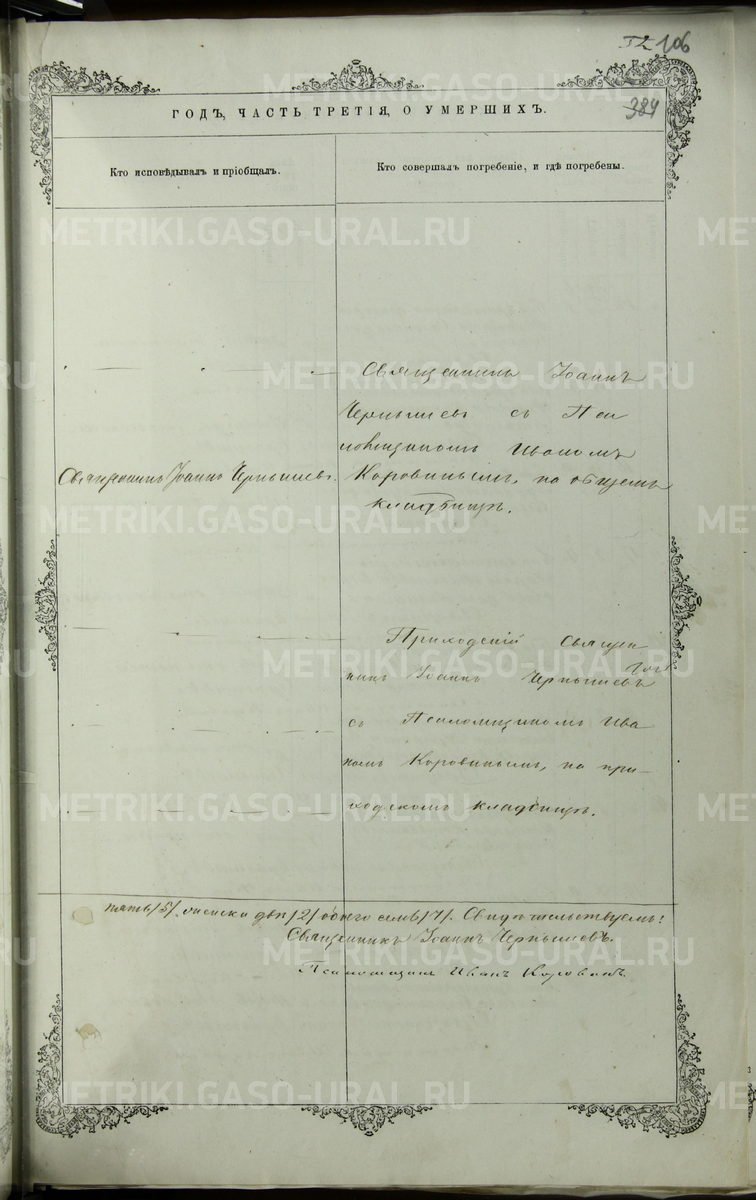 106
384
ГОДЪ, ЧАСТЬ ТРЕТІЯ, О УМЕРШИХЪ.
Кто исповѣдывалъ и пріобщалъ.
Кто совершалъ погребеніе, и гдѣ погребены.
Священникъ Іоаннъ Чернышевъ.
Священникъ Іоаннъ
Чернышевъ съ Пса
ломщикомъ Иваномъ
Коровинымъ, на общемъ
кладбищѣ.
Приходскій Священ
никъ Іоаннъ Чернышевъ
съ Псаломщикомъ Ива
номъ Коровинымъ, на при-
ходскомъ кладбищѣ.
пять /5/, женска двѣ /2/ обоего семь /7/. Свидѣтельствуемъ:
Священникъ Іоаннъ Чернышевъ.
Псаломщикъ Иванъ Коровинъ.
METRIKI.GASO-URAL.RU